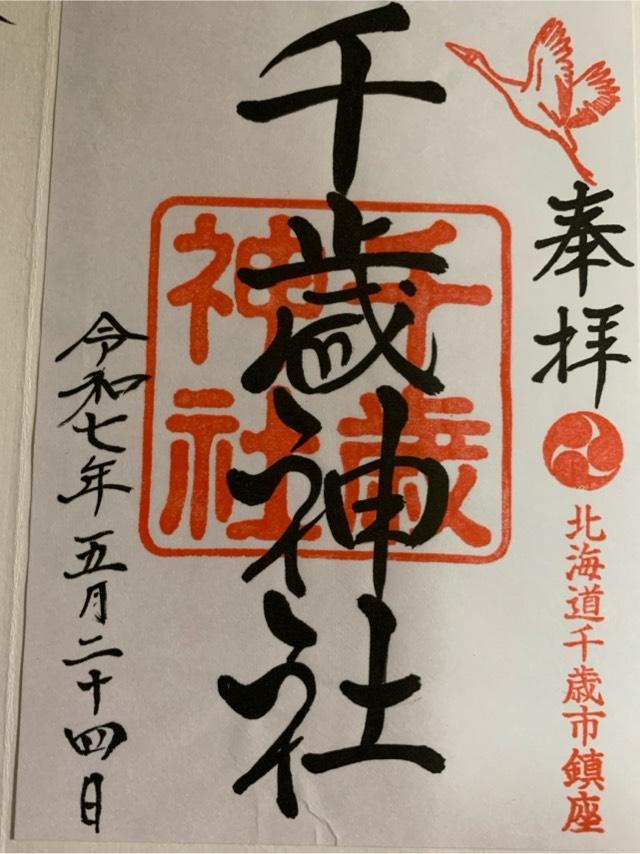 奉拝
北海道千歳市鎮座
千歳神社
千歳
神社
令和七年五月二十四日